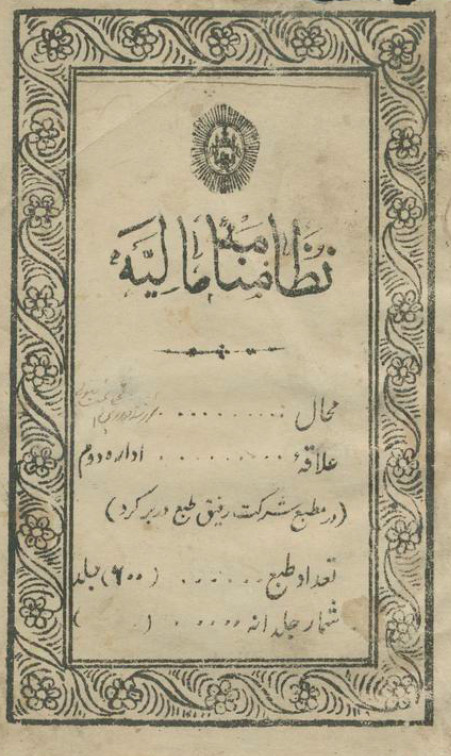 نظامنامهٔ مالیّه
محال . . . . . . . . . .
علاقهٔ . . . . . . . . . . ادارهٔ دوم
(در مطبع شرکت رفیق طبع در بر کرد)
تعداد طبع . . . . . . . (۶۰۰) جلد
شمار جلد انه . . . . . . ( )